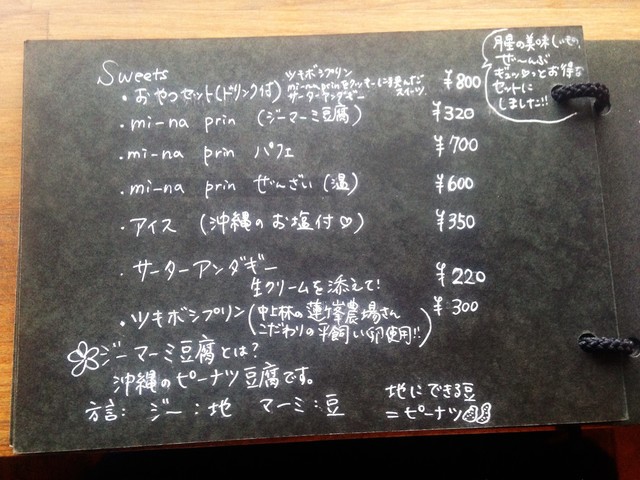 Sweets
・おやつセット(ドリンク付)
ツキボシプリン
mi-na prin
サーターアンダギー
スイーツ
¥800
月星の美味しいもの、
ぜ〜んぶ
ギュッっとお得な
セットに
しました!!
・mi-na prin (ジーマーミ豆腐) ¥320
・mi-na prin パフェ ¥700
・mi-na prin ぜんざい(温) ¥600
・アイス (沖縄のお塩付♡) ¥350
・サーターアンダギー
生クリームを添えて! ¥220
・ツキボシプリン(中上林の蓮ヶ峯農場さん ¥300
こだわりの平飼い卵使用!!)
ジーマーミ豆腐とは?
沖縄のピーナツ豆腐です。
方言: ジー:地 マーミ:豆
地にできる豆
=ピーナツ